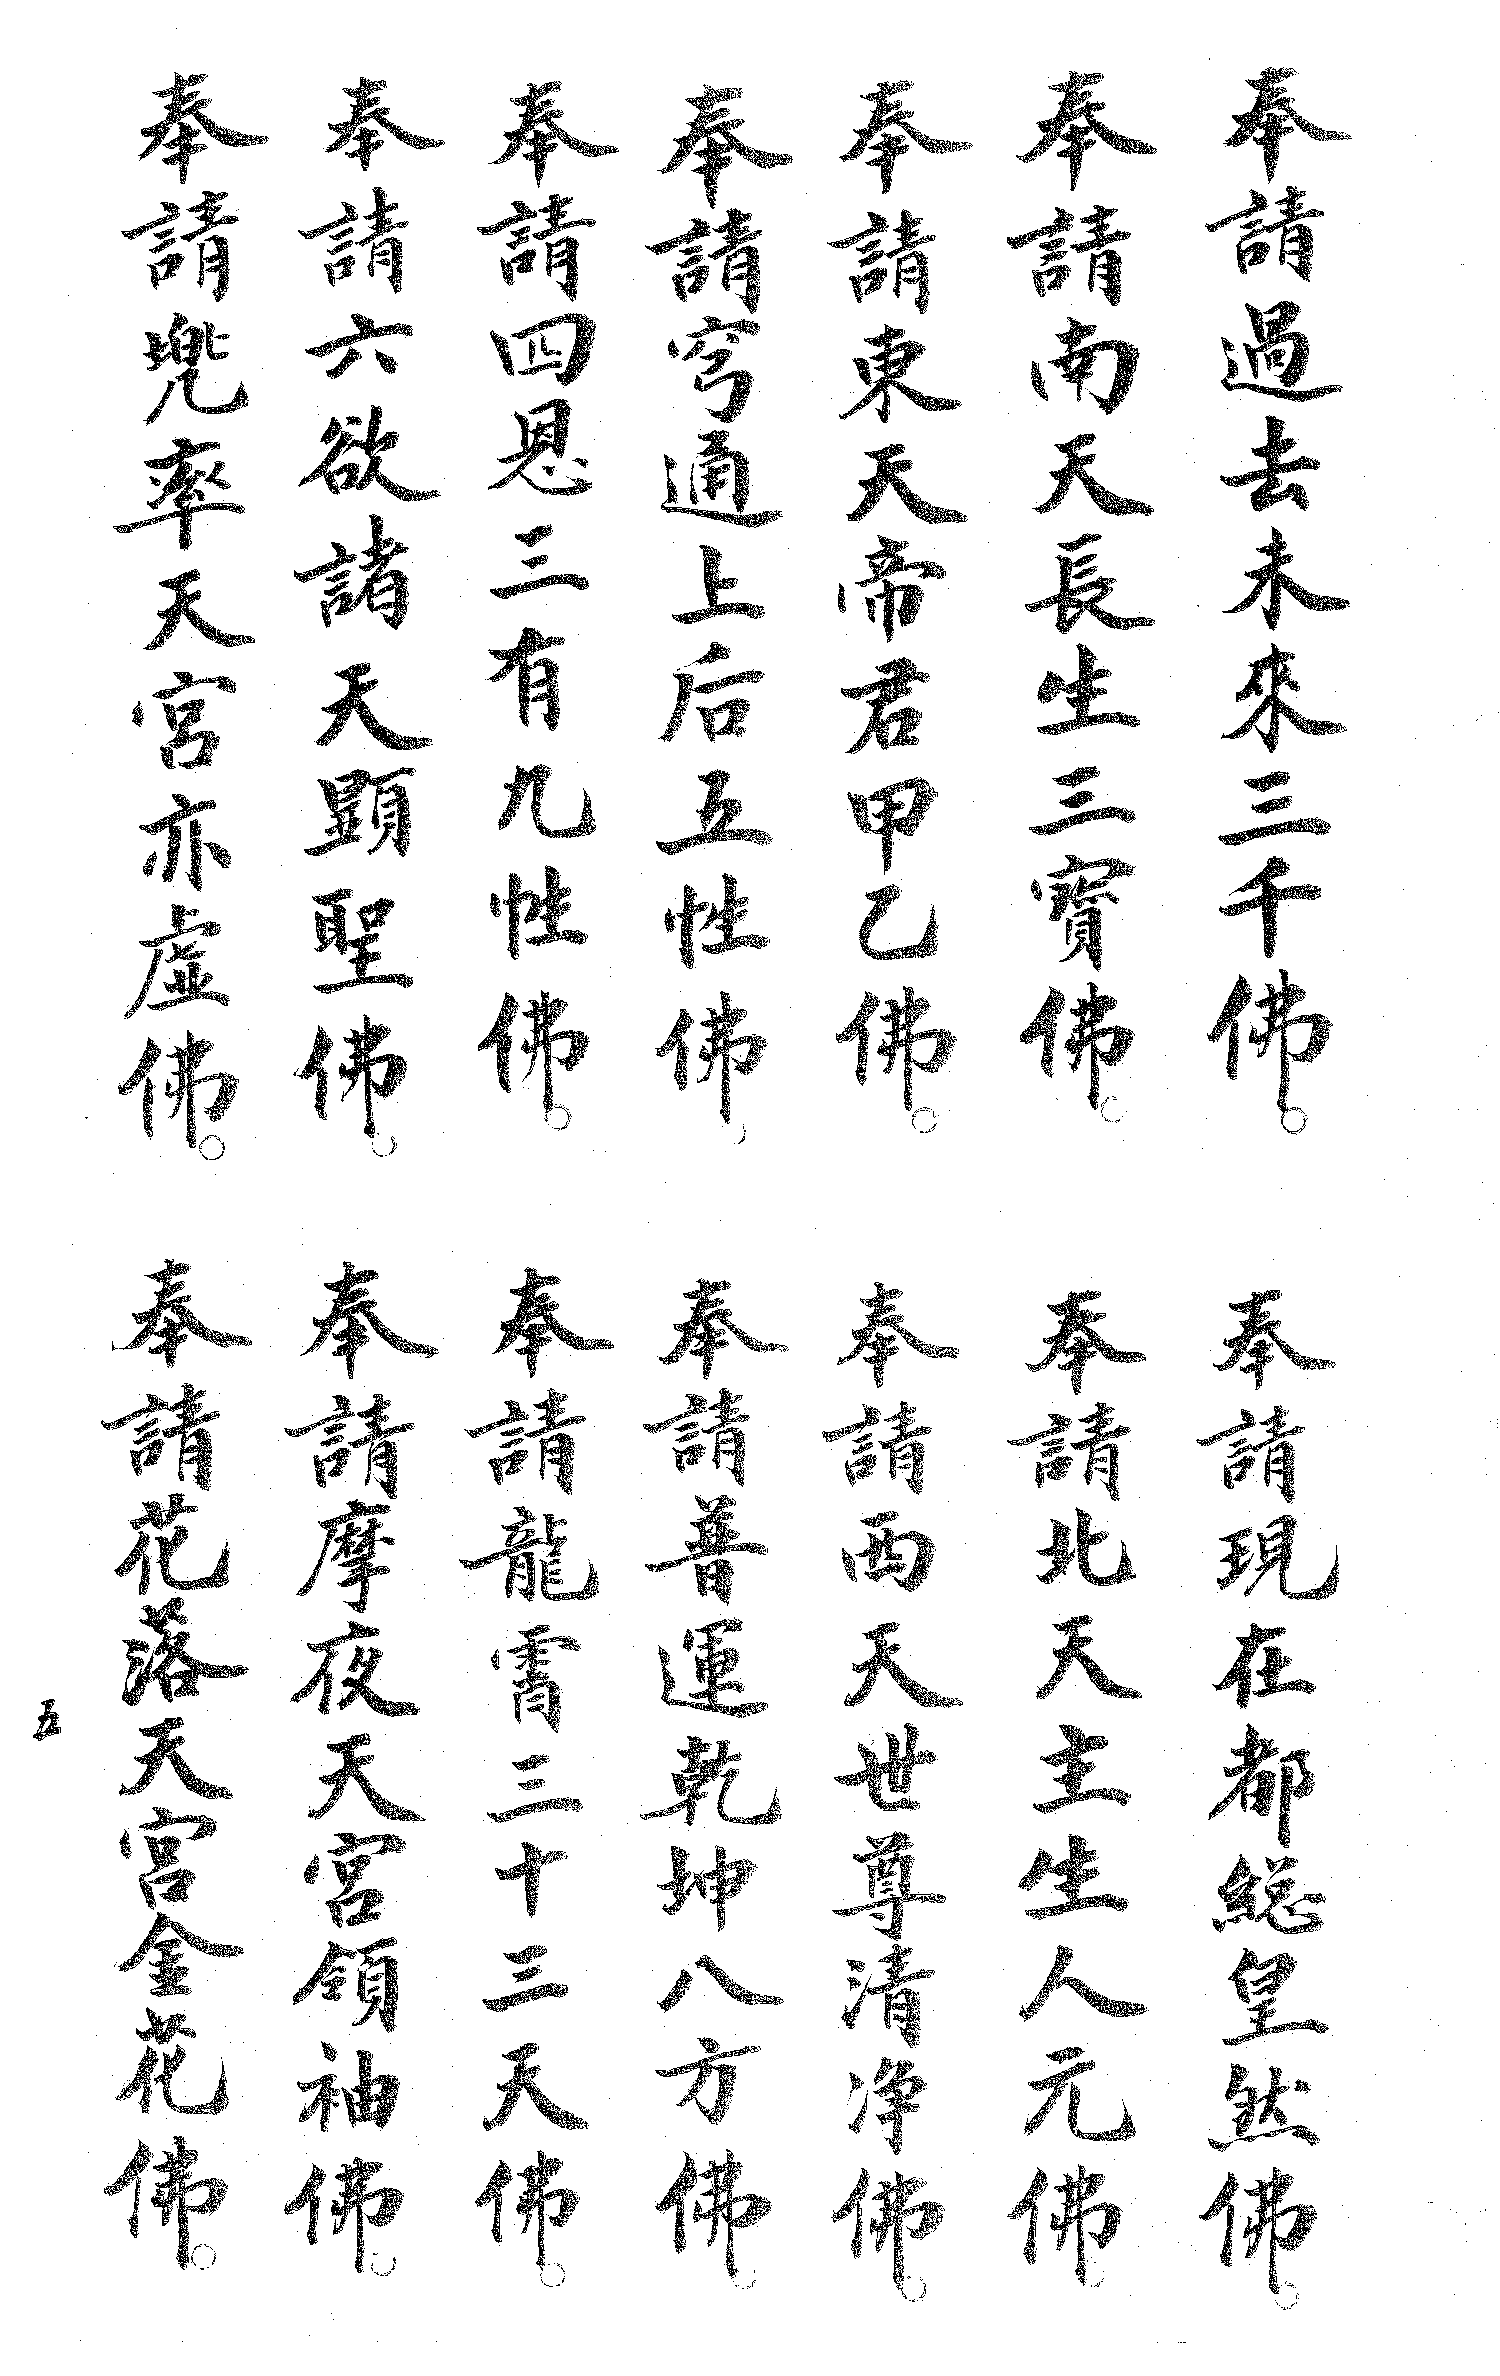 奉請過去未來三千佛。
奉請現在都総皇然佛。
奉請南天長生三寶佛。
奉請北天主生人元佛。
奉請東天帝君甲乙佛。
奉請西天世尊清净佛。
奉請穹通上后五性佛。
奉請普運乾坤八方佛。
奉請四恩三有九性佛。
奉請龍霄三十三天佛。
奉請六欲諸天顯聖佛。
奉請摩夜天宮領袖佛。
奉請兜率天宮亦虛佛。
奉請花落天宮金花佛。
五